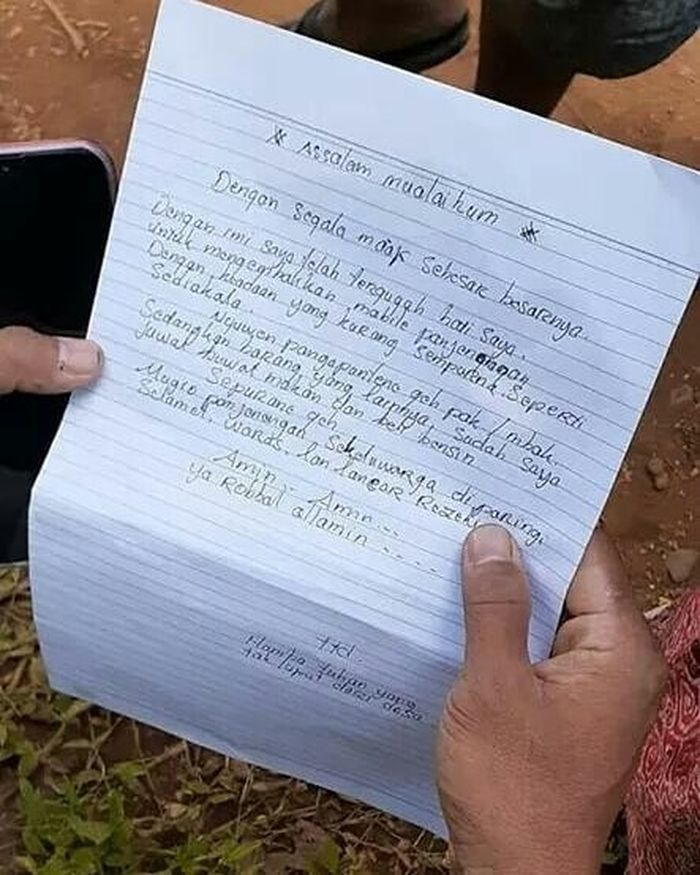 * Assalam mualaikum *
Dengan segala maaf sebesar besarenya.
Dengan ini saya telah tergugah hati saya,
untuk mengembalikan mobile panjenengan
Dengan kbadaan yang kurang sempurena. Seperti
Sediakala.
Nguwon pangapuntene geh pak / mbak.
Sedangkan barang yang lainnya, sudah saya
juwal buwat makan dan beli bensin
Sepurane geh
Mugio panjenengan sekeluwarga di paringi,
Selamet, waras, lan lancar Rozeki
Amin... Amin...
ya Robbail allamin .....
ttd.
Hamba tuhan yang
tak luput dari dosa